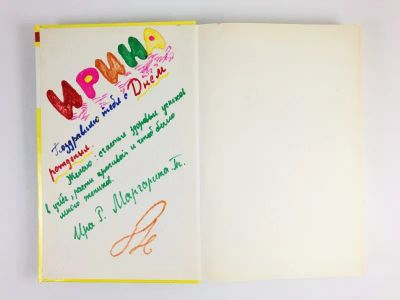 ИРИНА
Поздравляю тебя с Днём
рождения.
Желаю: счастья здоровья успехов
в учёбе, расти красивой и чтоб было
много женихов.
Ира Р. Маргарита Б.